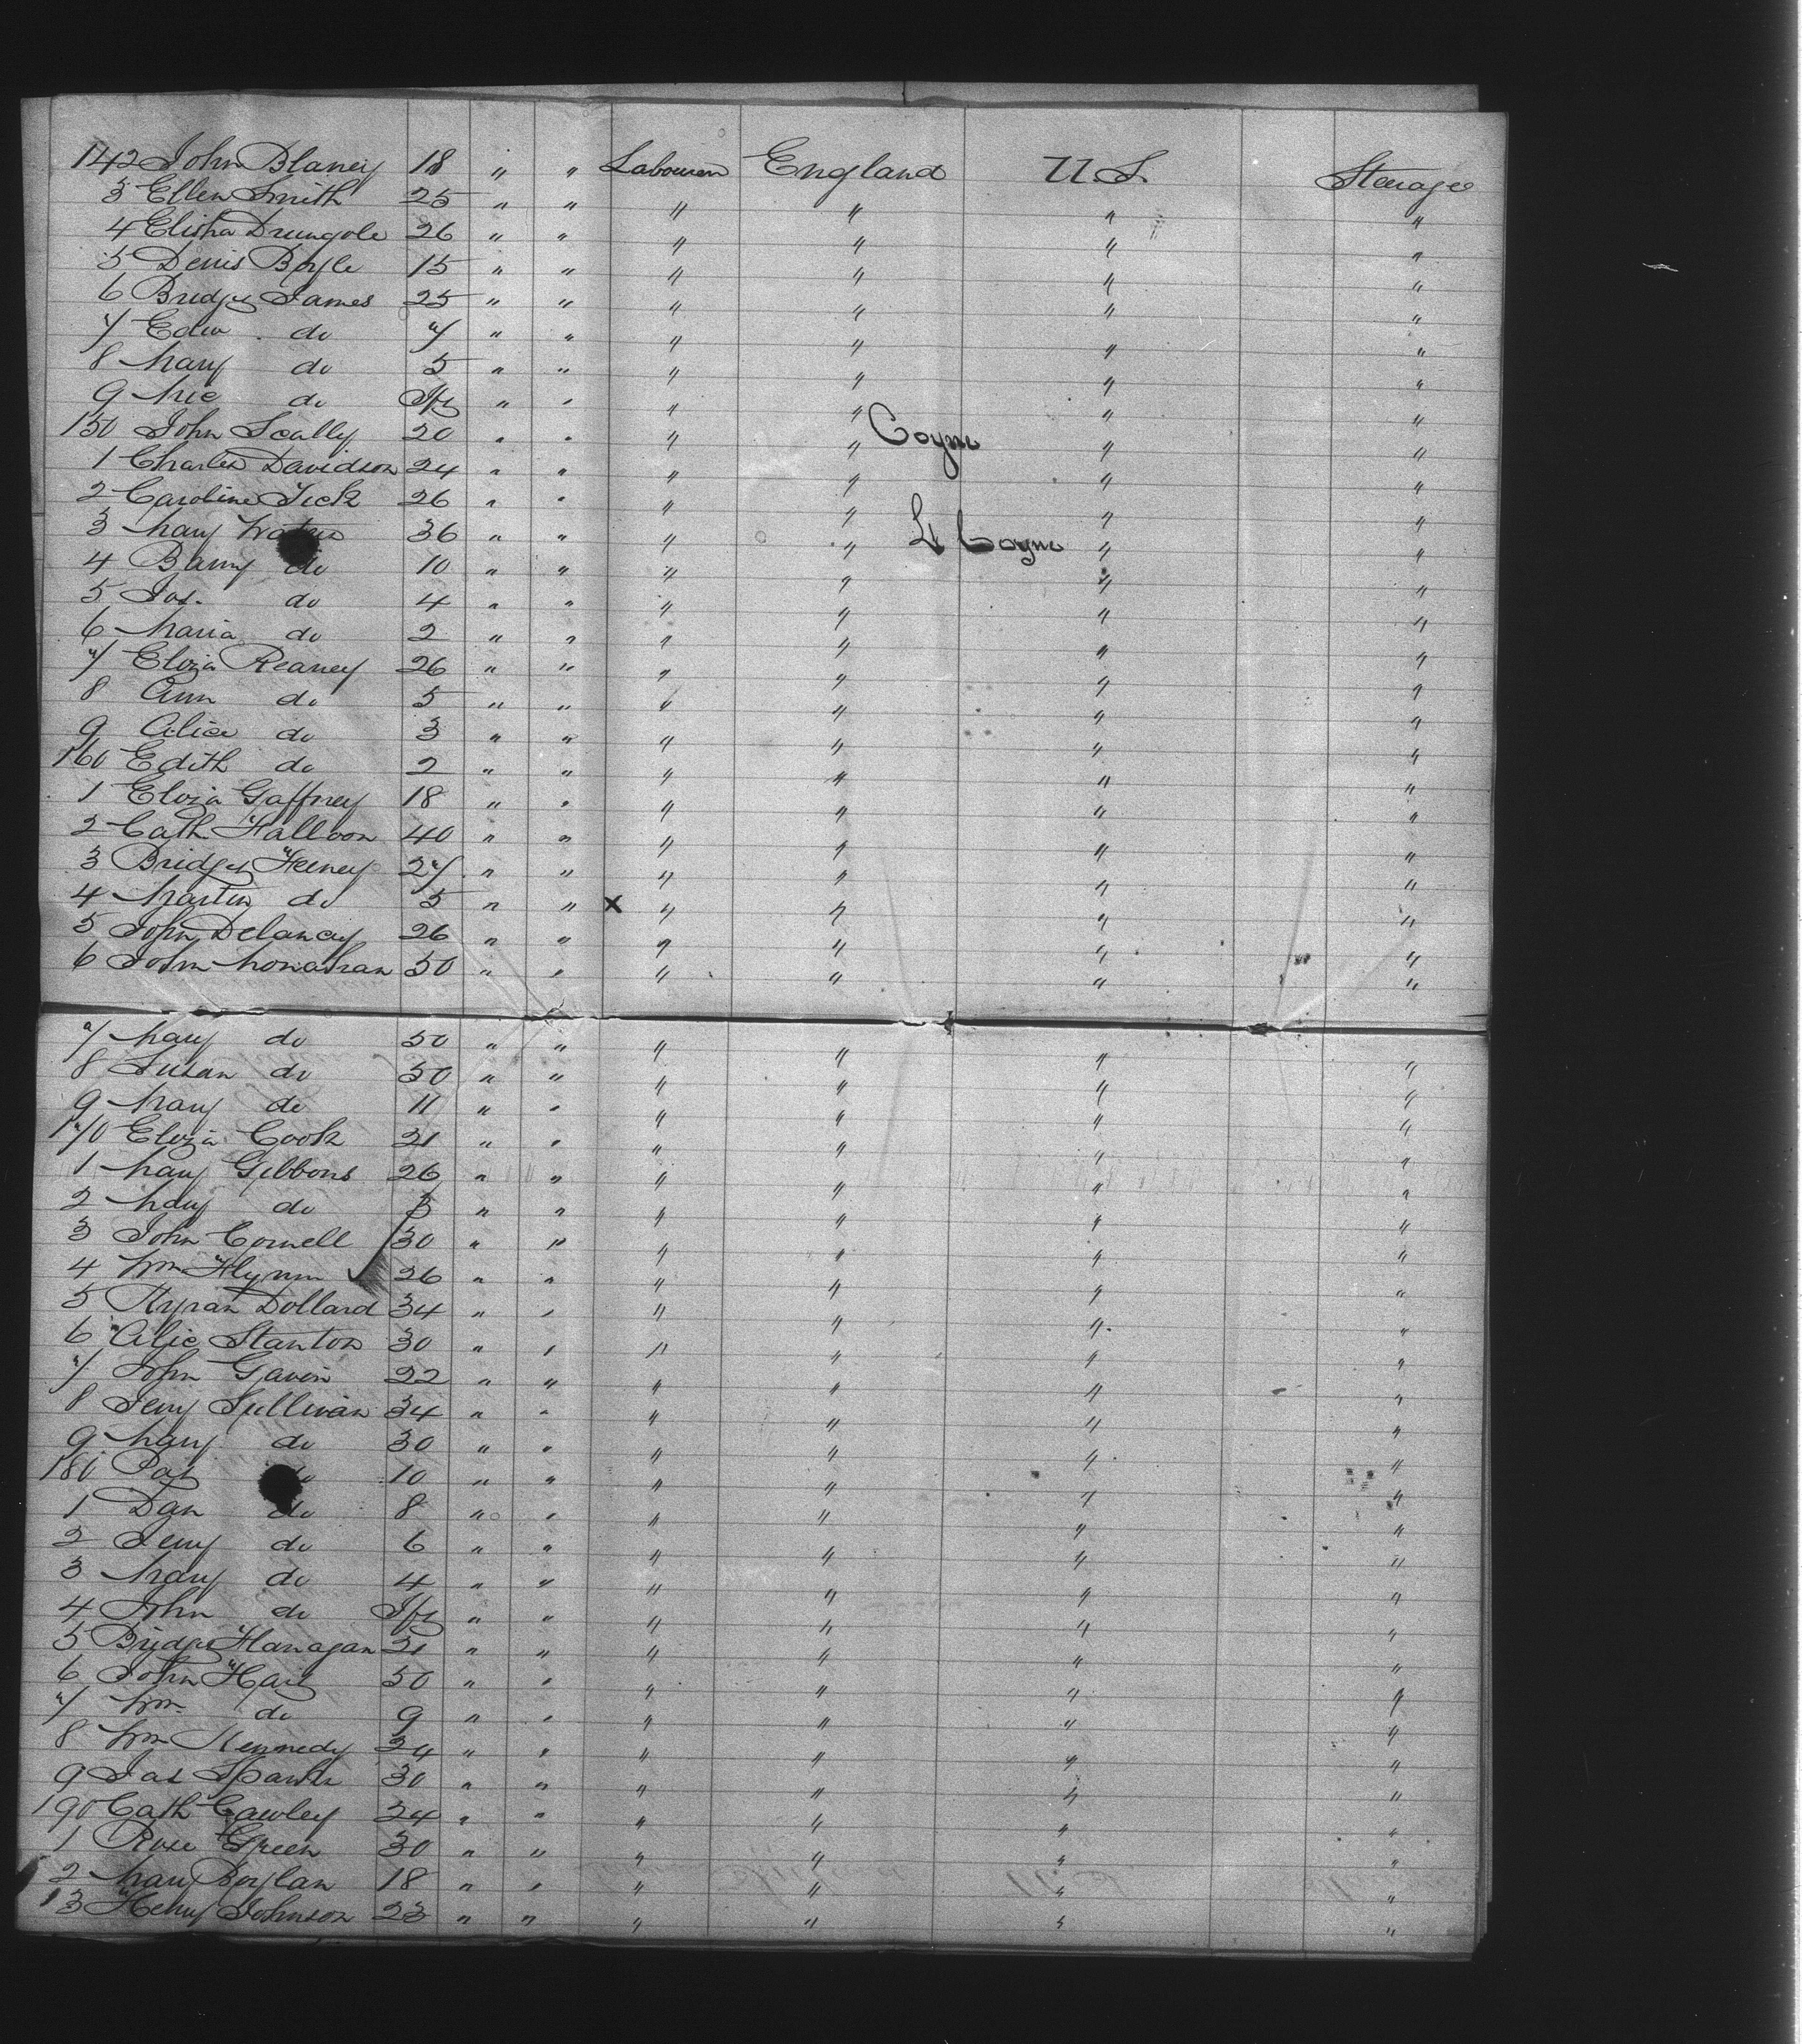 142 John Blaney 18 " " Labourer England U.S. Stearage
3 Ellen Smith 25 " " " " " "
4 Elisha Drumgole 26 " " " " " "
5 Denis Boyle 15 " " " " " "
6 Bridgt James 25 " " " " " "
7 Edw. do 7 " " " " " "
8 Mary do 5 " " " " " "
9 Mic do Inf " " " " " "
150 John Scally 20 " " " " " "
Coyne
1 Charles Davidson 24 " " " " " "
2 Caroline 26 " " " " " "
3 Mary Waters 36 " " " " " "
Coyne
4 Barny do 10 " " " " " "
5 Jas. do 4 " " " " " "
6 Maria do 2 " " " " " "
7 Eliza Reaney 26 " " " " " "
8 Ann do 5 " " " " " "
9 Alice do 3 " " " " " "
160 Edith do 2 " " " " " "
1 Eliza Gaffney 18 " " " " " "
2 Cath. Halloon 40 " " " " " "
3 Bridgt Feeney 27 " " " " " "
4 Martin do 5 " " x " " " "
5 John Delancy 26 " " " " " "
6 John Monahan 50 " " " " " "
7 Mary do 50 " " " " " "
8 Susan do 50 " " " " " "
9 Mary do 11 " " " " " "
170 Eliza Cook 21 " " " " " "
1 Mary Gibbons 26 " " " " " "
2 Mary do 3 " " " " " "
3 John Connell 30 " " " " " "
4 Wm Flynn 26 " " " " " "
5 Kyran Dollard 34 " " " " " "
6 Alic Stanton 30 " " " " " "
7 John Gavin 22 " " " " " "
8 Jerry Sullivan 34 " " " " " "
9 Mary do 30 " " " " " "
180 Pat do 10 " " " " " "
1 Dan do 8 " " " " " "
2 Jerry do 6 " " " " " "
3 Mary do 4 " " " " " "
4 John do Inf " " " " " "
5 Bridgt Flanagan 21 " " " " " "
6 John Hart 50 " " " " " "
7 Wm do 9 " " " " " "
8 Wm Kennedy 34 " " " " " "
9 Jas 30 " " " " " "
190 Cath Cawley 24 " " " " " "
1 Rose Green 30 " " " " " "
2 Mary Boylan 18 " " " " " "
13 Henry Johnson 23 " " " " " "